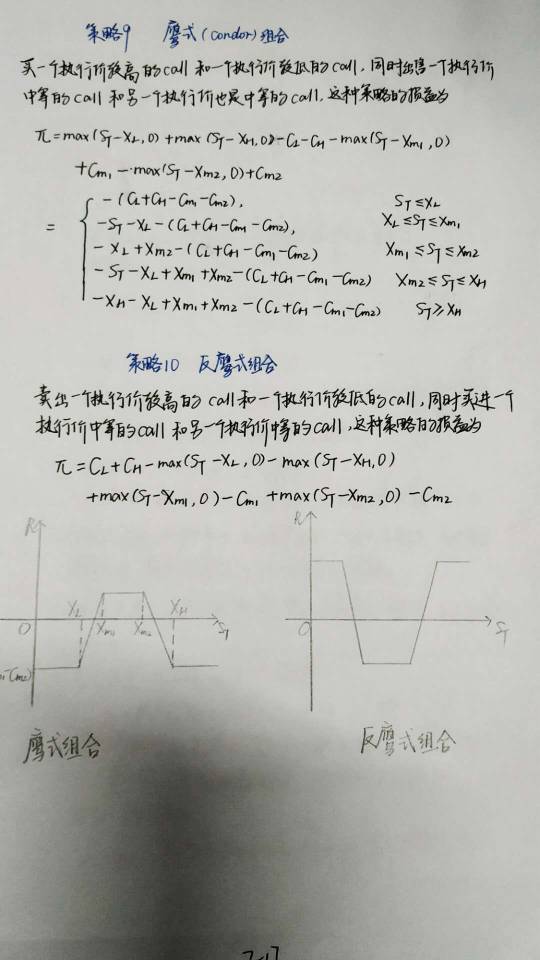 策略9 鹰式(condor)组合
买一个执行价较高的call和一个执行价较低的call,同时出售一个执行价
中等的call和另一个执行价也是中等的call.这种策略的损益为
π=max(S_T-X_L,0)+max(S_T-X_H,0)-C_L-C_H-max(S_T-X_{m1},0)
+C_{m1}-max(S_T-X_{m2},0)+C_{m2}
-(C_L+C_H-C_{m1}-C_{m2}), S_T≤X_L
-S_T-X_L-(C_L+C_H-C_{m1}-C_{m2}), X_L≤S_T≤X_{m1}
= -X_L+X_{m2}-(C_L+C_H-C_{m1}-C_{m2}) X_{m1}≤S_T≤X_{m2}
-S_T-X_L+X_{m1}+X_{m2}-(C_L+C_H-C_{m1}-C_{m2}) X_{m2}≤S_T≤X_H
-X_H-X_L+X_{m1}+X_{m2}-(C_L+C_H-C_{m1}-C_{m2}) S_T≥X_H
策略10 反鹰式组合
卖出一个执行价较高的call和一个执行价较低的call,同时买进一个
执行价中等的call和另一个执行价中等的call,这种策略的损益为
π=C_L+C_H-max(S_T-X_L,0)-max(S_T-X_H,0)
+max(S_T-X_{m1},0)-C_{m1}+max(S_T-X_{m2},0)-C_{m2}
R
X_L X_H
O X_{m1} X_{m2} S_T
C_{m2})
鹰式组合
R
O S_T
反鹰式组合